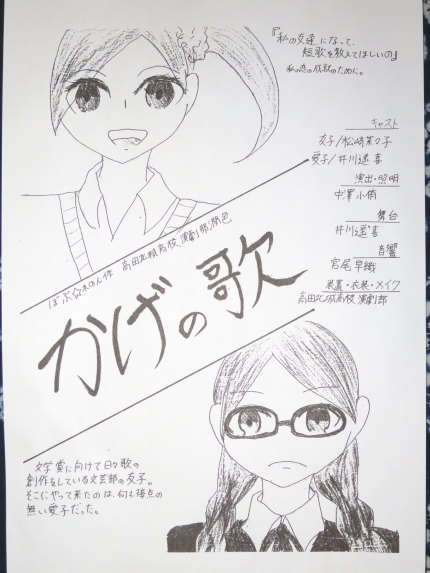 『私の友達になって、
短歌を教えてほしいの』
私の恋の成就のために。
キャスト
友子/松崎菜々子
愛子/井川遥喜
演出・照明
中澤小侑
舞台
井川遥喜
音響
宮尾早織
装置・衣装・メイク
高田北城高校演劇部
高田北城高校演劇部潤色
かげの歌
文学賞に向けて日々歌の
創作をしている文芸部の友子。
そこにやって来たのは、何も接点の
無い愛子だった。